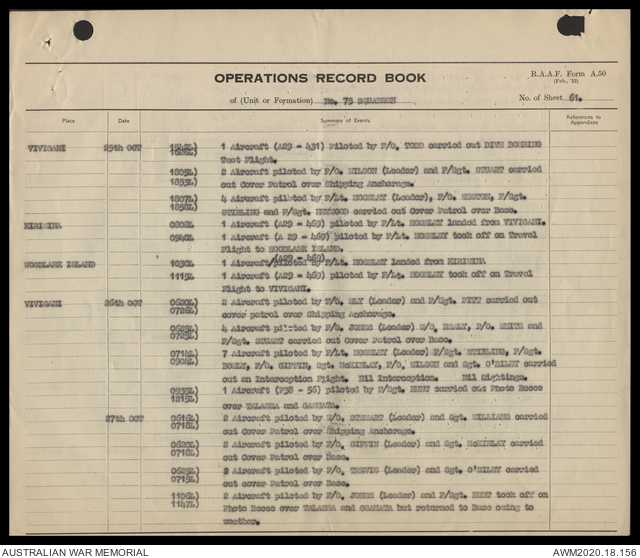 OPERATIONS RECORD BOOK
R.A.A.F. Form A.50
of (Unit or Formation) No. 75 SQUADRON
No. of Sheet 61.
Place Date Summary of Events References to Appendices
VIVIGANI 25th OCT 1 Aircraft (A29 - 431) Piloted by F/O. TODD carried out DIVE BOMBING
Test Flight.
1805L) 2 Aircraft piloted by F/O. WILSON (Leader) and F/Sgt. STUART carried
1855L) out Cover Patrol over Shipping Anchorage.
1807L) 4 Aircraft piloted by F/Lt. (Leader), F/O. F/Sgt.
1858L) STIRLING and F/Sgt. HEYWOOD carried out Cover Patrol over Base.
KIRIWINA 0808L 1 Aircraft (A29 - 469) piloted by F/Lt. landed from VIVIGANI.
0940L 1 Aircraft (A 29 - 469) piloted by F/Lt. took off on Travel
Flight to WOODLARK ISLAND.
(A29 - 469)
WOODLARK ISLAND 1030L 1 Aircraft/piloted by F/Lt. landed from KIRIWINA
1115L 1 Aircraft (A29 - 469) piloted by F/Lt. took off on Travel
Flight to VIVIGANI.
VIVIGANI 26th OCT 0620L) 2 Aircraft piloted by F/O. ELY (Leader) and F/Sgt. PITT carried out
0726L) cover patrol over Shipping Anchorage.
0625L) 4 Aircraft piloted by F/O. JONES (Leader) F/O. HEALY, F/O. WHITE and
0725L) F/Sgt. STUART carried out Cover Patrol over Base.
0714L) 7 Aircraft piloted by F/Lt. (Leader) F/Sgt. STIRLING, F/Sgt.
F/O. GIFFIN, Sgt. McKINLAY, F/O. WILSON and Sgt. O'RILEY carried
out an Interception Flight. Nil Interception. Nil Sightings.
0935L) 1 Aircraft (P38 - 56) piloted by F/Sgt. HUNT carried out Photo Recce
1215L) over TALASEA and GASMATA.
27th OCT 0616L) 2 Aircraft piloted by F/O. STEWART (Leader) and Sgt. WILLIAMS carried
0718L) out Cover Patrol over Shipping Anchorage.
0620L) 2 Aircraft piloted by F/O. GIFFIN (Leader) and Sgt. McKINLAY carried
0718L) out Cover Patrol over Base.
0625L) 2 Aircraft piloted by F/O. (Leader) and Sgt. O'RILEY carried
0715L) out cover Patrol over Base.
1106L) 2 Aircraft piloted by F/O. JONES (Leader) and F/Sgt. HUNT took off on
1147L) Photo Recce over TALASEA and GASMATA but returned to Base owing to
weather.
AUSTRALIAN WAR MEMORIAL AWM2020.18.156